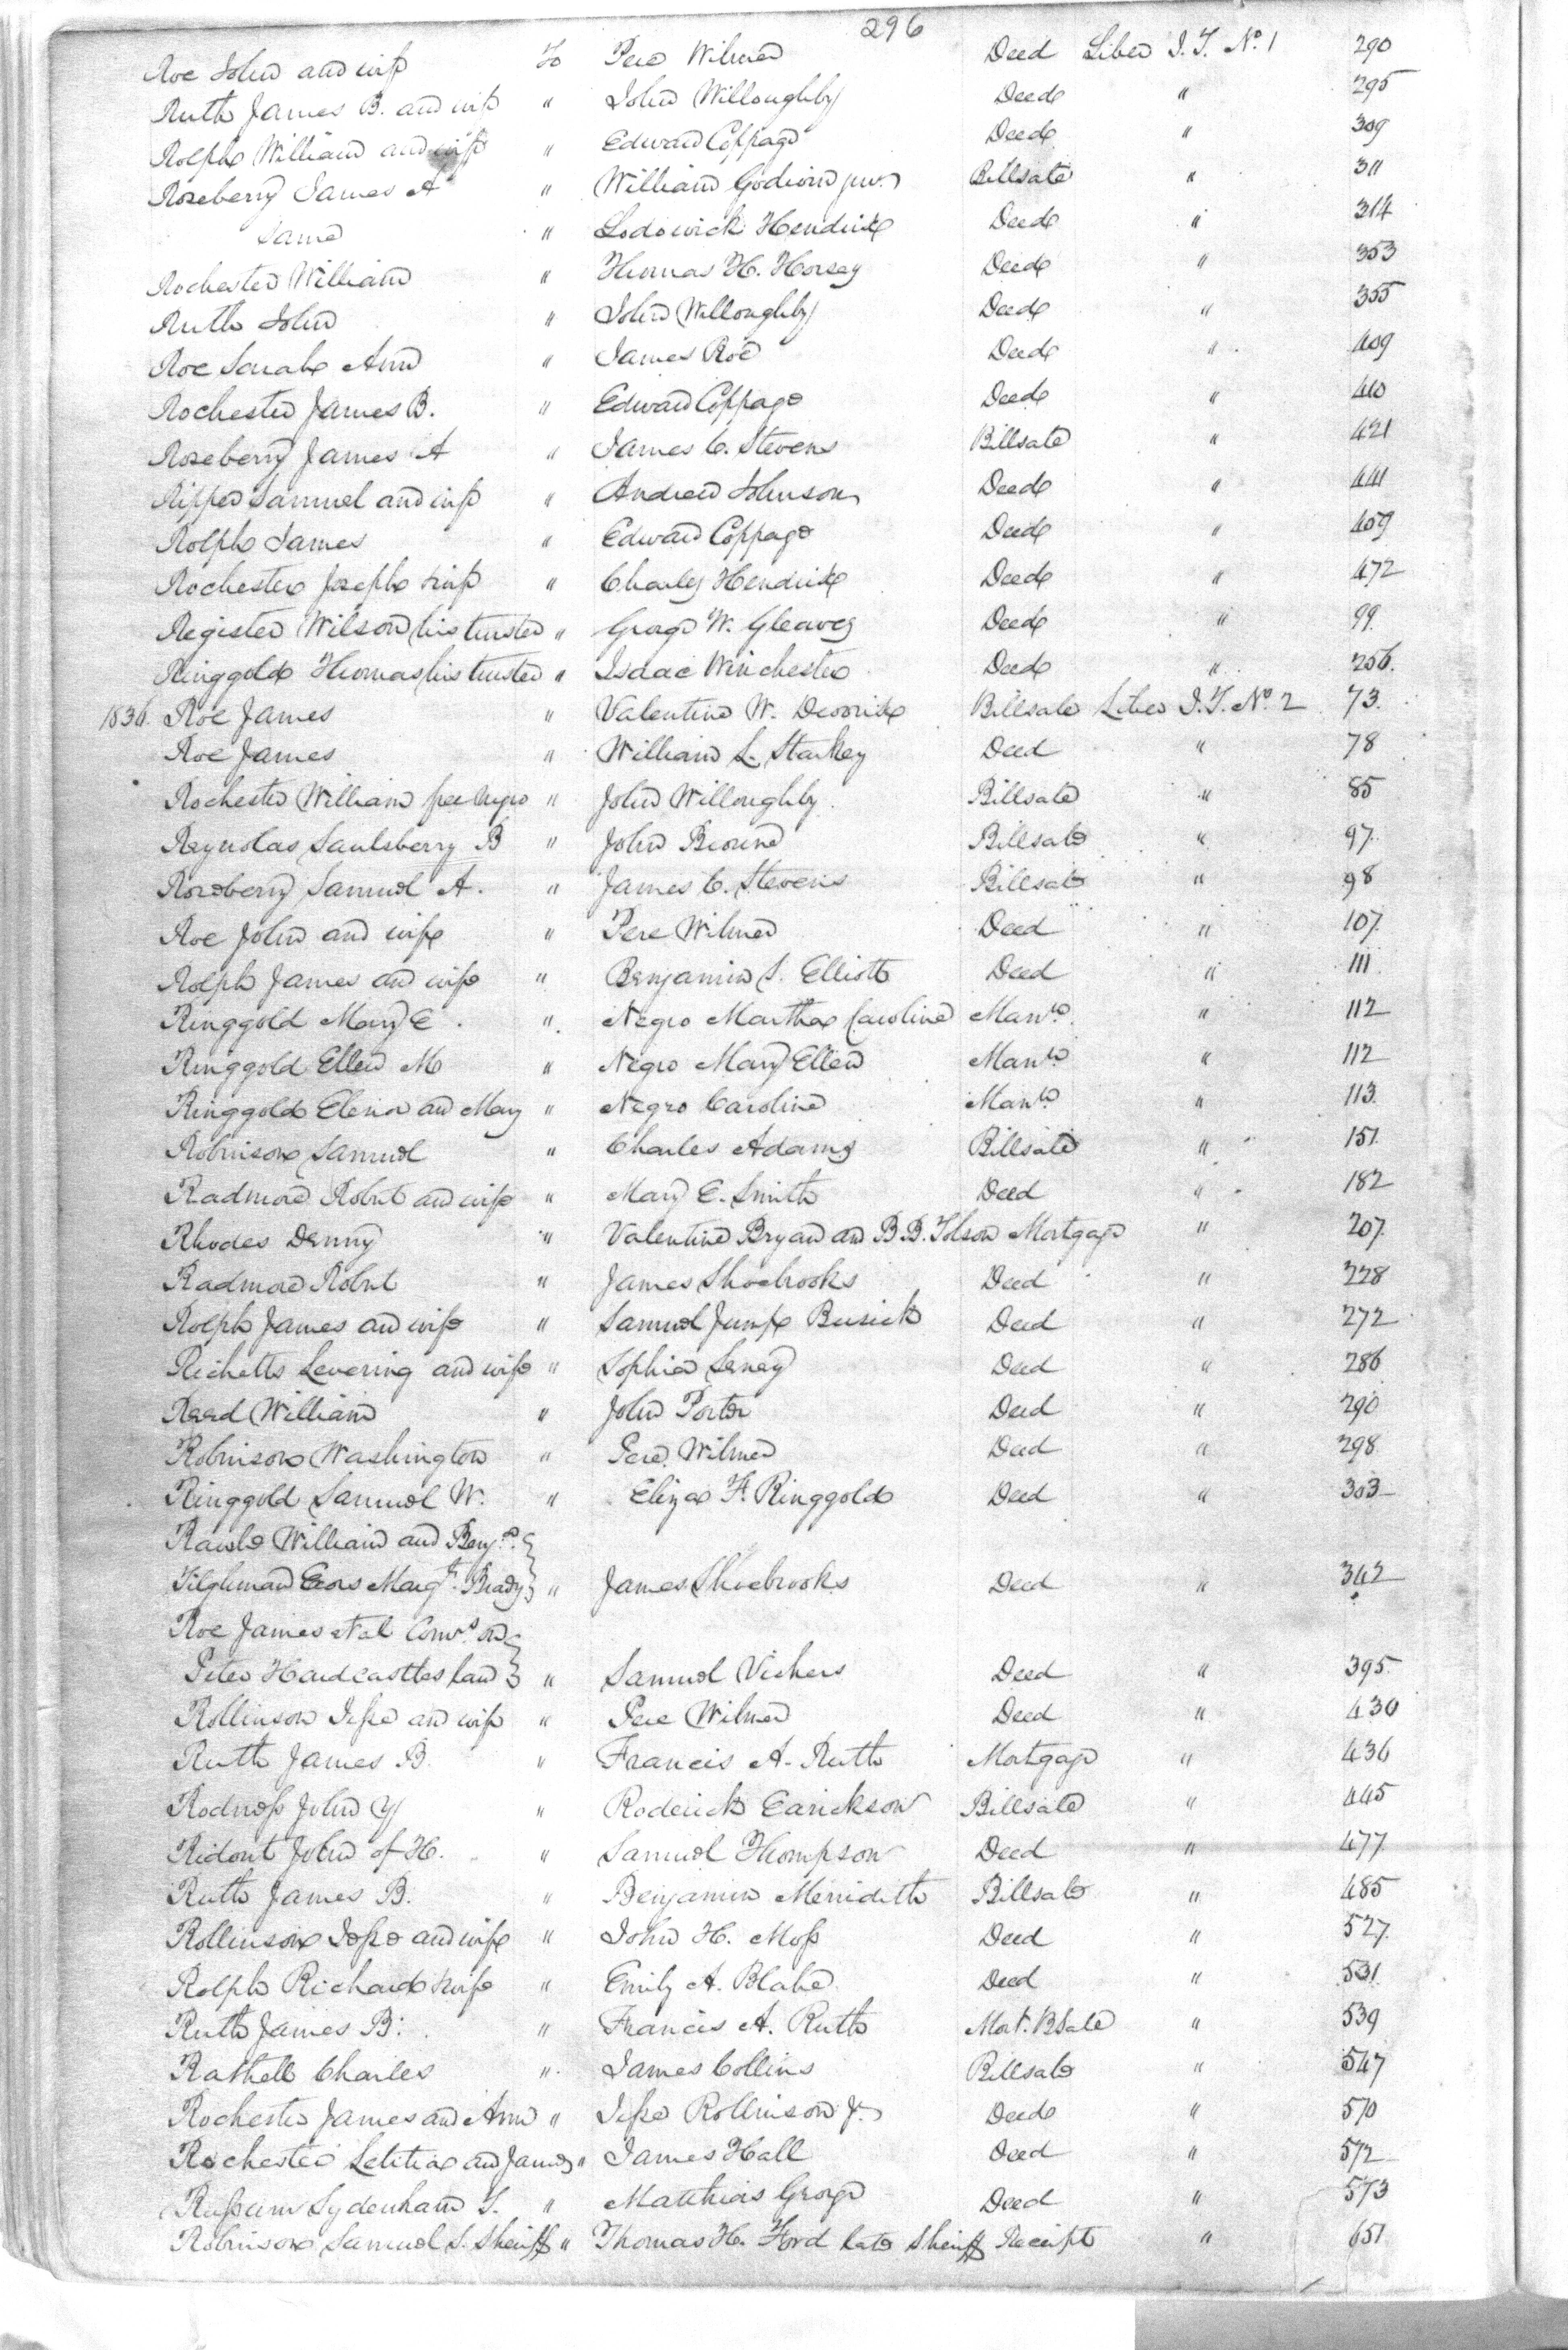 296
Roe John and wife To Pere Wilmer Deed Liber J.T. No. 1 290
Ruth James B. and wife " John Willoughby Deed " 295
Rolph William and wife " Edward Coppage Deed " 309
Roseberry James A " William Godwin junr. Billsale " 311
Same " Lodowick Hendrix Deed " 314
Rochester William " Thomas H. Horsey Deed " 353
Ruth John " John Willoughby Deed " 355
Roe Sarah Ann " James Roe Deed " 409
Rochester James B. " Edward Coppage Deed " 410
Roseberry James A " James C. Stevens Billsale " 421
Ripper Samuel and wife " Andrew Johnson Deed " 441
Rolph James " Edward Coppage Deed " 459
Rochester Joseph & wife " Charles Hendrix Deed " 472
Register Wilson his trustee " George W. Gleaves Deed " 99.
Ringgold Thomas his trustee " Isaac Winchester Deed " 256.
1836. Roe James " Valentine W. Derrick Billsale Liber J.T. No. 2 73.
Roe James " William L. Starkey Deed " 78
Rochester William free negro " John Willoughby. Billsale " 85
Reynolds Saulsberry B " John Browne Billsale " 97.
Roseberry Samuel A. " James C. Stevens Billsale " 98
Roe John and wife " Pere Wilmer Deed " 107.
Rolph James and wife " Benjamin S. Elliott Deed " 111.
Ringgold Mary E. " Negro Martha Caroline Manto. " 112
Ringgold Ellen M " Negro Mary Ellen Manto " 112
Ringgold Elenor and Mary " Negro Caroline Manto. " 113.
Robinson Samuel " Charles Adams Billsale " 151.
Radmore Robert and wife " Mary E. Smith Deed " 182
Rhodes Denny " Valentine Bryan and B.B. Tolson Mortgage " 207.
Radmore Robert " James Shoebrooks Deed " 228
Rolph James and wife " Samuel Jump Busick Deed " 272
Richetts Levering and wife " Sophia Seney Deed " 286
Reed William " John Porter Deed " 290
Robinson Washington " Pere Wilmer Deed " 298
Ringgold Samuel W. " Eliza F. Ringgold Deed " 303
William and Benjn.
Tilghman Exors Margt. Brady " James Shoebrooks Deed " 342
Roe James et al Comrs. on
Peter Hardcastles land " Samuel Vickers Deed " 395.
Rollinson Jesse and wife " Pere Wilmer Deed " 430
Ruth James B. " Francis A. Ruth Mortgage " 436
John Y " Roderick Earickson Billsale " 445
Ridout John of H. " Samuel Thompson Deed " 477.
Ruth James B. " Benjamin Merridith Billsale " 485
Rollinson Jesse and wife " John H. Moss Deed " 527.
Rolph Richard & wife " Emily A. Blake Deed " 531.
Ruth James B. " Francis A. Ruth Mort. BSale " 539
Rathell Charles " James Collins Billsale " 547
Rochester James and Ann " Jesse Rollinson Jr. Deed " 570
Rochester Letitia and James " James Hall Deed " 572
Russum Sydenham T. " Matthias George Deed " 573
Robinson Samuel S. Sheriff " Thomas H. Ford late Sheriff Receipt " 651